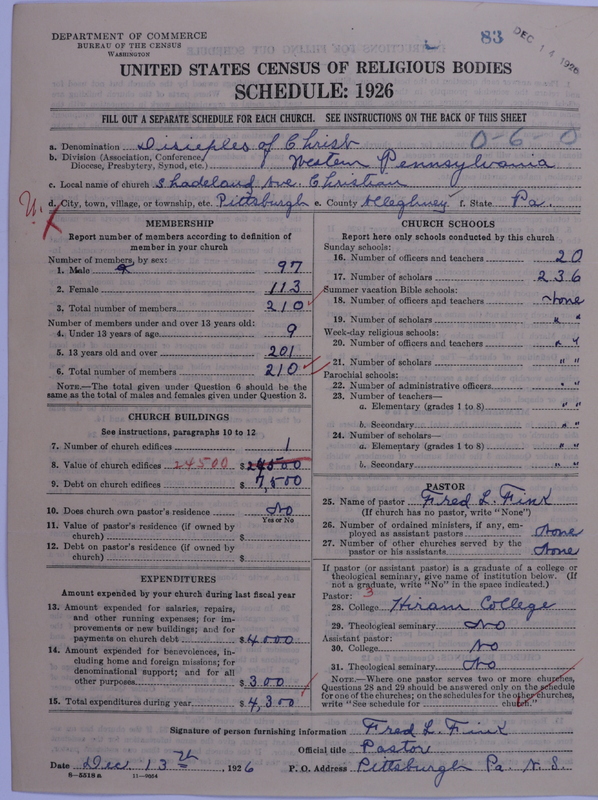 83
DEC 14 1926
DEPARTMENT OF COMMERCE
BUREAU OF THE CENSUS
WASHINGTON
UNITED STATES CENSUS OF RELIGIOUS BODIES
SCHEDULE: 1926
FILL OUT A SEPARATE SCHEDULE FOR EACH CHURCH. SEE INSTRUCTIONS ON THE BACK OF THIS SHEET
a. Denomination Disciples of Christ 0-6-0
b. Division (Association, Conference, Diocese, Presbytery, Synod, etc.) Western Pennsylvania
c. Local name of church Shadeland Ave. Christian
d. City, town, village, or township, etc. Pittsburgh e. County Alleghney f. State Pa.
MEMBERSHIP
Report number of members according to definition of
member in your church
Number of members, by sex:
1. Male 97
2. Female 113
3. Total number of members 210
Number of members under and over 13 years old:
4. Under 13 years of age 9
5. 13 years old and over 201
6. Total number of members 210
NOTE.—The total given under Question 6 should be
same as the total of males and females given under Question 3.
CHURCH BUILDINGS
See instructions, paragraphs 10 to 12
7. Number of church edifices 1
8. Value of church edifices 24500 $ 24500
9. Debt on church edifices $ 7,500
10. Does church own pastor's residence No
Yes or No
11. Value of pastor's residence (if owned by
church) $
12. Debt on pastor's residence (if owned by
church) $
EXPENDITURES
Amount expended by your church during last fiscal year
13. Amount expended for salaries, repairs,
and other running expenses; for im-
provements or new buildings; and for
payments on church debt $ 4000
14. Amount expended for benevolences, in-
cluding home and foreign missions; for
denominational support; and for all
other purposes $ 300
15. Total expenditures during year $ 4,300
CHURCH SCHOOLS
Report here only schools conducted by this church
Sunday schools:
16. Number of officers and teachers 20
17. Number of scholars 236
Summer vacation Bible schools:
18. Number of officers and teachers None
19. Number of scholars " "
Week-day religious schools:
20. Number of officers and teachers " "
21. Number of scholars " "
Parochial schools:
22. Number of administrative officers " "
23. Number of teachers—
a. Elementary (grades 1 to 8) " "
b. Secondary " "
24. Number of scholars—
a. Elementary (grades 1 to 8) " "
b. Secondary " "
PASTOR
25. Name of pastor Fred L. Fink
(If church has no pastor, write "None")
26. Number of ordained ministers, if any, em-
ployed as assistant pastors None
27. Number of other churches served by the
pastor or his assistants None
If pastor (or assistant pastor) is a graduate of a college or
theological seminary, give name of institution below. (If
not a graduate, write "No" in the space indicated.)
Pastor: 3
28. College Hiram College
29. Theological seminary No
Assistant pastor:
30. College No
31. Theological seminary No
NOTE.—Where one pastor serves two or more churches,
Questions 28 and 29 should be answered only on the schedule
for one of the churches; on the schedules for the other churches,
write "See schedule for church."
Signature of person furnishing information Fred L. Fink
Official title Pastor
Date Dec. 13th, 1926 P. O. Address Pittsburgh Pa. N.S.
8—5518a 11—9054